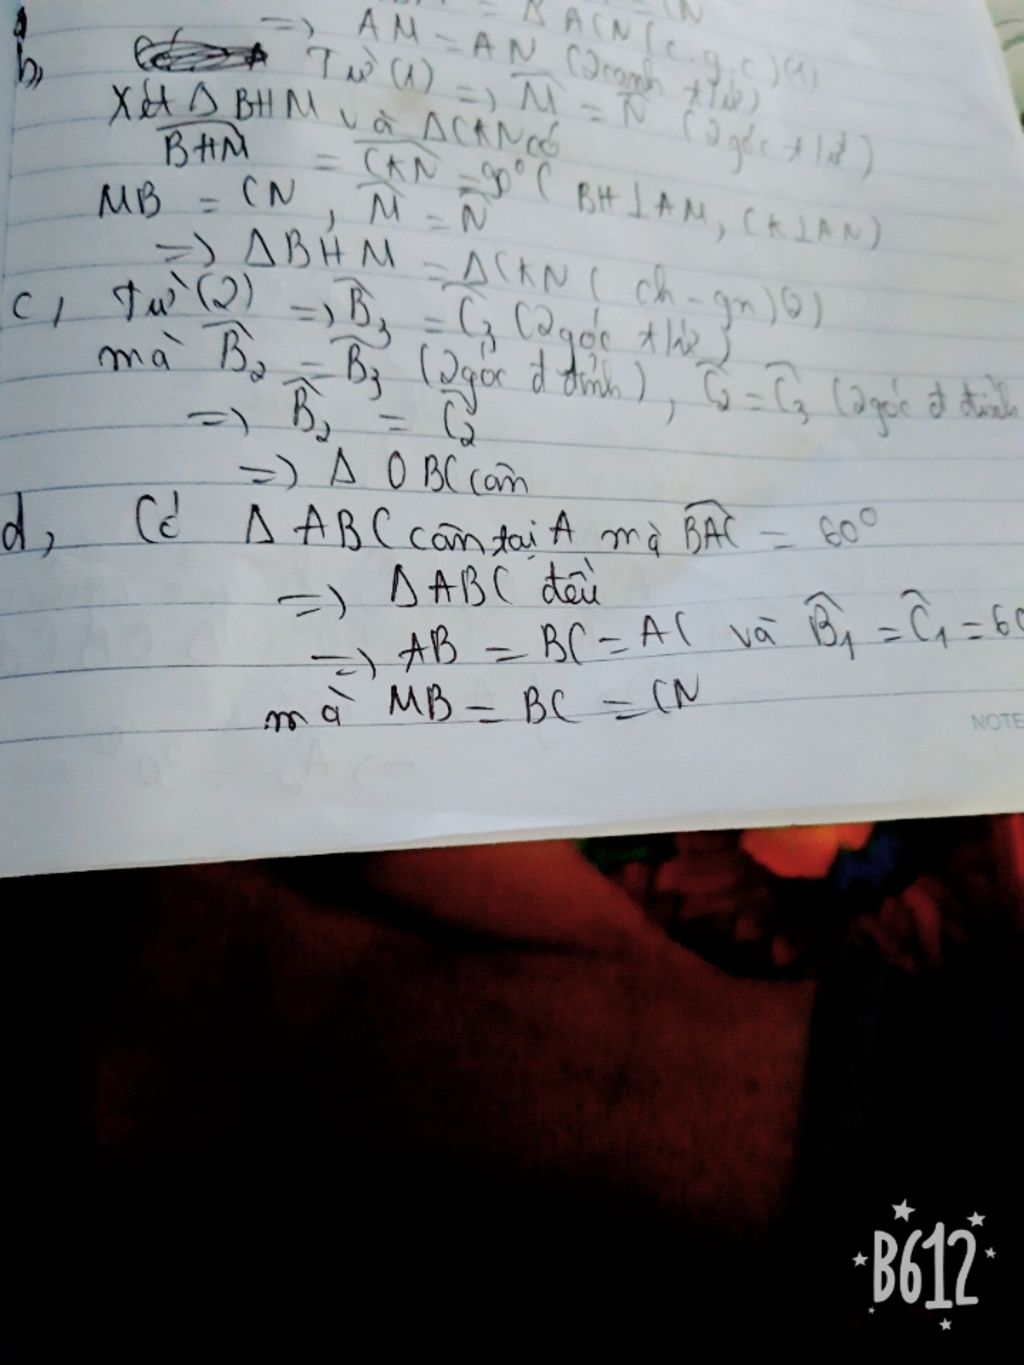 = Δ ACN (c.g.c)(1)
=> AM = AN (2 cạnh tứ)
b, Từ (1) => M̂ = N̂ (2 góc tứ)
Xét Δ BHM và ΔCKN có
BHM = CKN = 90° ( BH ⊥ AM, CK ⊥ AN)
MB = CN , M̂ = N̂
=> Δ BHM = ΔCKN ( ch - gn )(2)
c, Từ (2) => B̂3 = Ĉ3 (2 góc tứ)
mà B̂2 = B̂3 (2 góc đ đỉnh), Ĉ2 = Ĉ3 (2 góc đ đỉnh
=> B̂2 = Ĉ2
=> Δ OBC cân
d, Có Δ ABC cân tại A mà BAC = 60°
=> Δ ABC đều
=> AB = BC = AC và B̂1 = Ĉ1 = 60
mà MB = BC = CN
NOTE
B612